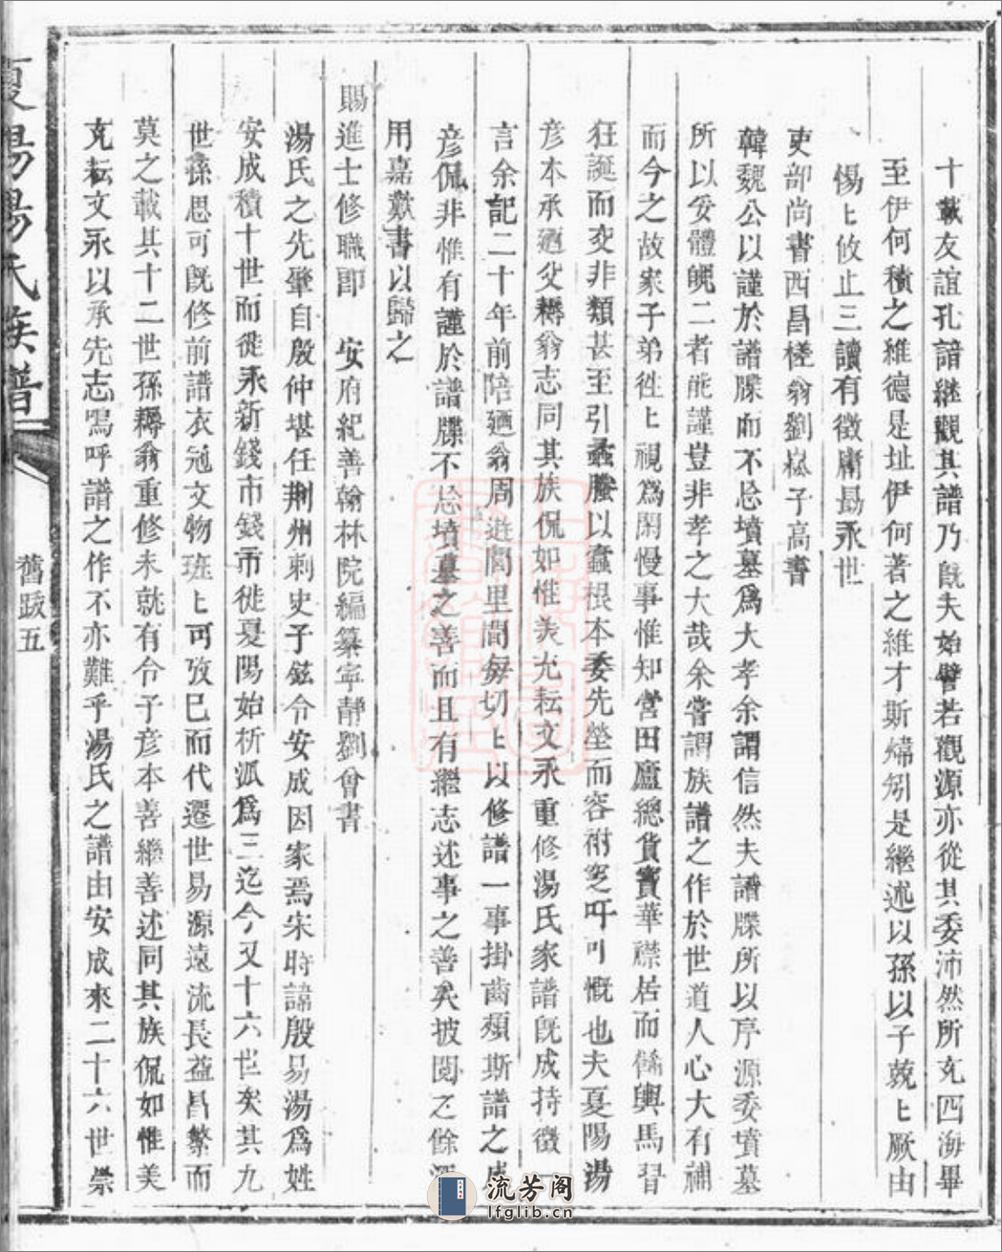 十載友誼孔諳継觀其譜乃旣夫始譬若觀源亦從其委沛然所充四海畢
至伊何積之維德是址伊何著之維才斯煒矧是繼述以孫以子兢〻厥由
惕〻攸止三讀有徵庸勗永世
吏部尚書西昌槎翁劉崧子高書
韓魏公以謹於譜牒而不忘墳墓爲大孝余謂信然夫譜牒所以序源委墳墓
所以安體魄二者能謹豈非孝之大哉余嘗謂族譜之作於世道人心大有補
而今之故家子弟徃〻視爲閑慢事惟知營田廬總貨寳華襟居而餙輿馬習
狂誕而交非類甚至引蟊螣以蠧根本委先塋而容祔窆吁可慨也夫夏陽湯
彦本承廼父耨翁志同其族侃如惟美尤耘文永重修湯氏家譜旣成持徵
言余記二十年前陪廼翁周遊閭里間每切〻以修譜一事掛齒頰斯譜之成
彦侃非惟有謹於譜牒不忘墳墓之善而且有繼志述事之善矣披閲之餘
用嘉歎書以歸之
賜進士修職郎 安府紀善翰林院編纂寧靜劉會書
湯氏之先肇自殷仲堪任荆州刺史子鉉令安成因家焉宋時諱殷易湯爲姓
安成積十世而徙永新錢市錢市徙夏陽始析派爲三迄今又十六世矣其九
世孫思可旣修前譜衣冠文物班〻可攷巳而代遷世易源遠流長益昌繁而
莫之載其十二世孫耨翁重修未就有令子彦本善繼善述同其族侃如惟美
克耘文永以承先志嗚呼譜之作不亦難乎湯氏之譜由安成來二十六世崇
夏陽湯氏族譜
舊跋五
流芳阁
lfglib.cn